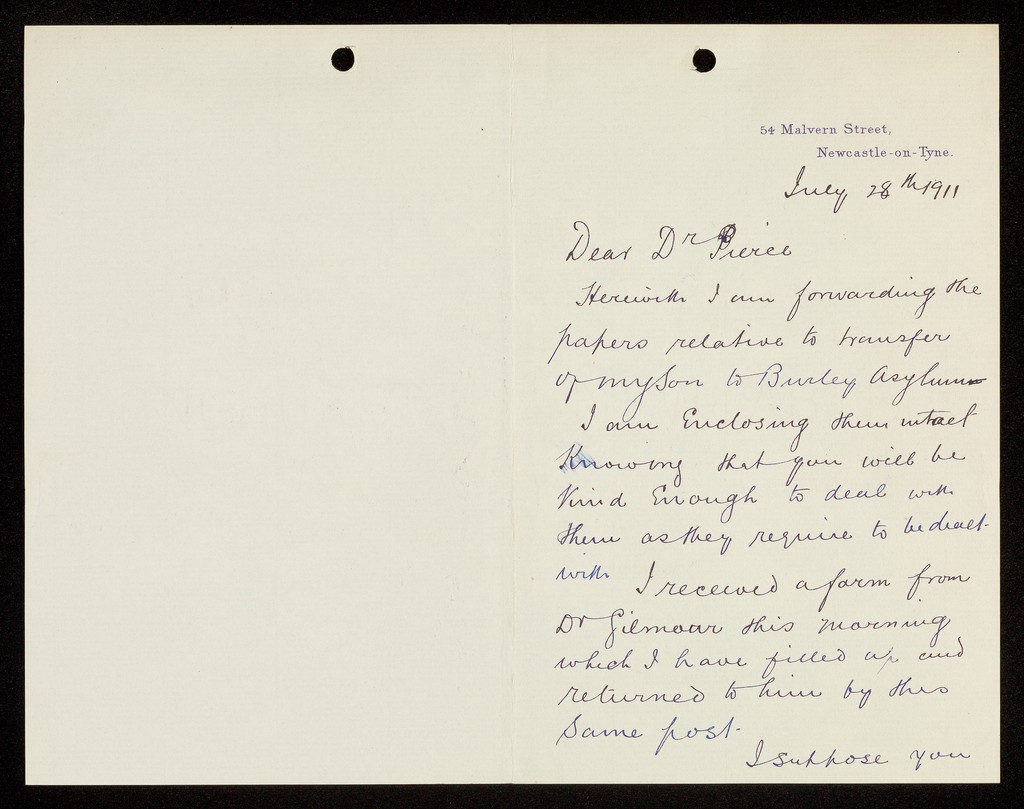 54 Malvern Street,
Newcastle-on-Tyne.
July 28th 1911
Dear Dr Pierce
Herewith I am forwarding the
papers relative to transfer
of my son to Burley Asylum
I am Enclosing them intact
Knowing that you will be
Kind Enough to deal with
them as they require to be dealt
with I received a form from
Dr Gilmour this morning
which I have filled up and
returned to him by this
Same post.
I suppose you